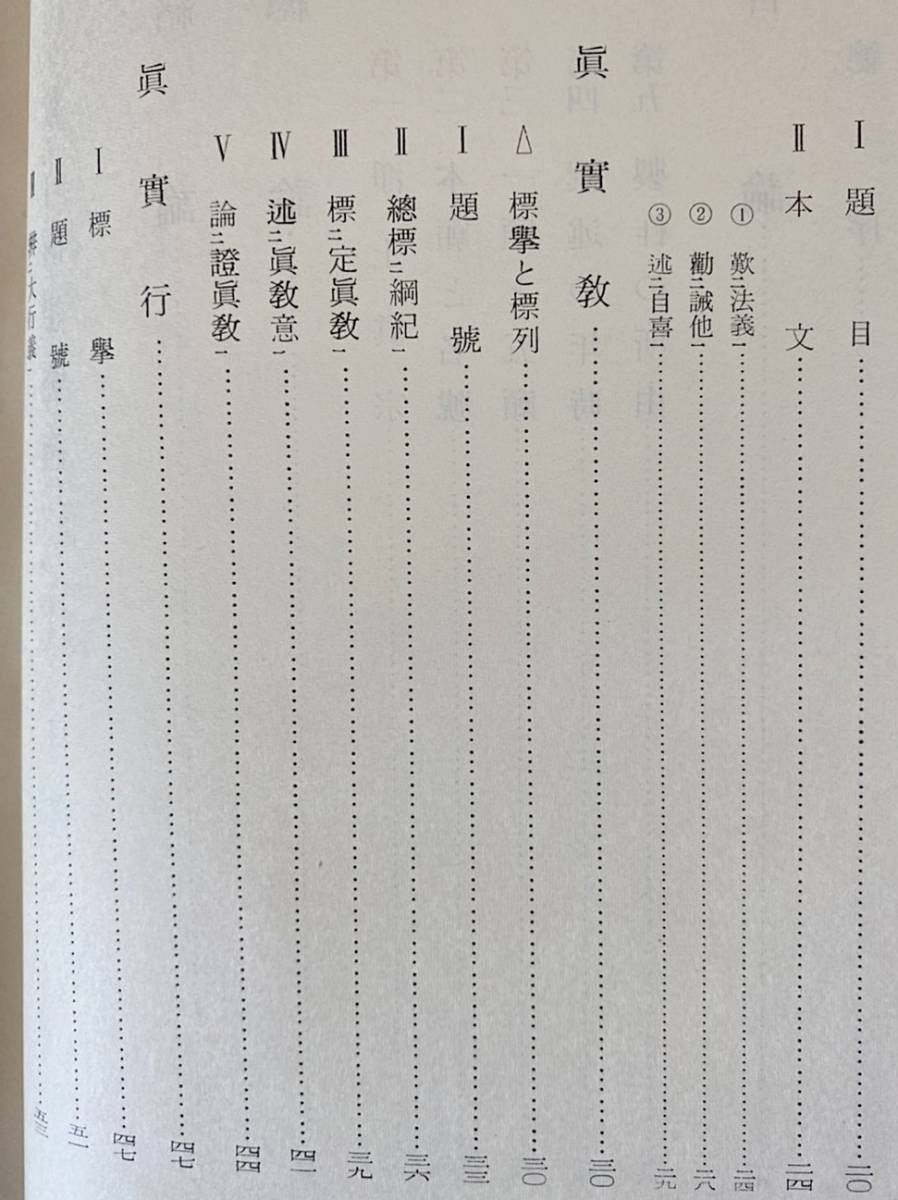 Ⅰ 題目……二〇
Ⅱ 本文……二四
① 歎二法義一……二四
② 勸二誡他一……二八
③ 述二自喜一……二九
眞實敎……三〇
△ 標擧と標列……三〇
Ⅰ 題號……三三
Ⅱ 總標二綱紀一……三六
Ⅲ 標二定眞敎一……三九
Ⅳ 述二眞敎意一……四一
Ⅴ 論二證眞敎一……四四
眞實行……四七
Ⅰ 標擧……四七
Ⅱ 題號……五一
Ⅲ 二大行義一……五三